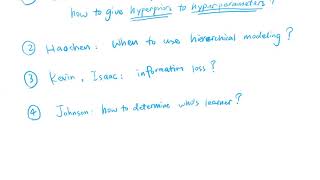 how to give hyperpriors to hyperparameters?
② Haochen: When to use hierarchical modeling?
③ Kevin, Isaac: information loss?
④ Johnson: how to determine who's learner?